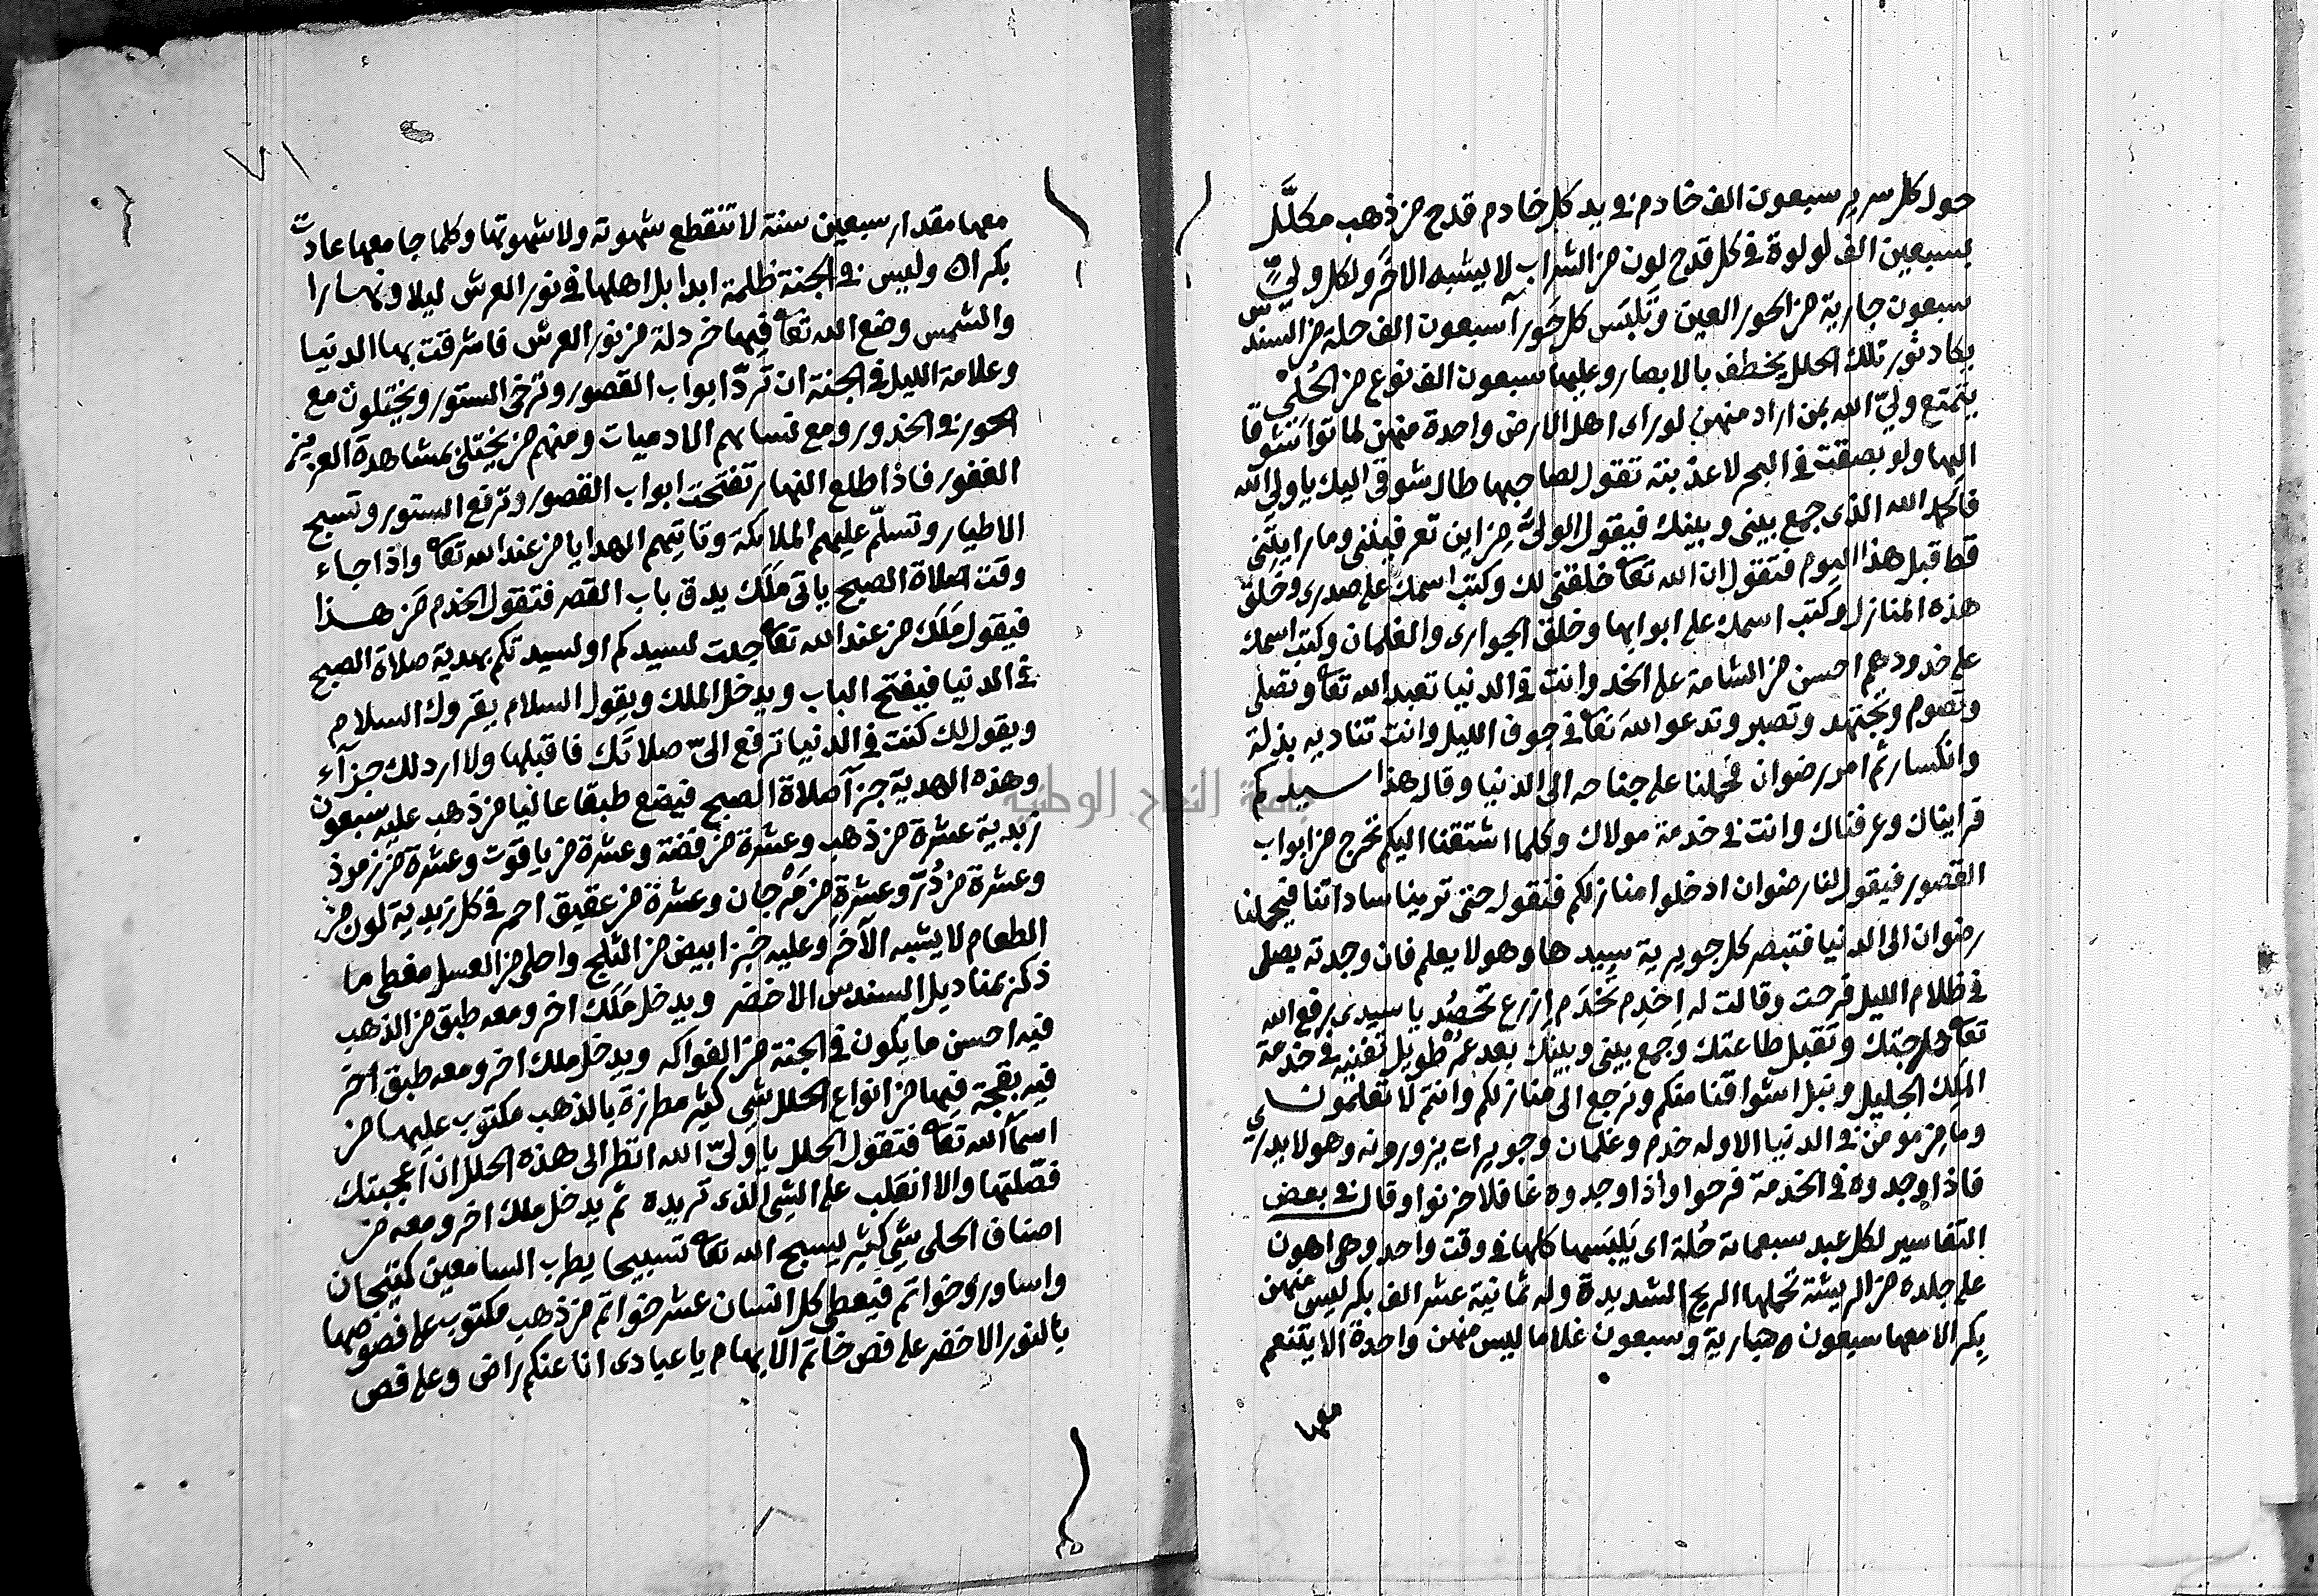 حول كل سرير سبعون الف خادم في يد كل خادم قدح من ذهب مكلَّل
بسبعين الف لولوة في كل قدح لون من الشراب لا يشبه الاخَر ولكل وليٍّ
سبعون جارية من الحور العين وتَلبَس كل حَورآ سبعون الف حلة من السندس
يكاد نور تلك الحلل يخطف بالابصار وعليها سبعون الف نوع من الحُلي
يتمتع وليّ الله بمن اراد منهن لو راى اهل الارض واحدة منهن لماتوا تشوقا
اليها ولو بصقت في البحر لاعذبته تقول لصاحبها طال شوقي اليك يا ولي الله
فالحمد الله الذى جمع بينى وبينك فيقول الوليّ من اين تعرفيننى وما رايتِنى
قط قبل هذا اليوم فتقول ان الله تعا خلقنى لك وكتب اسمك على صدرى وخلق
هذه المنازل وكتب اسمك على ابوابها وخلق الجوارى والغلمان وكتب اسمك
على خدودهم احسن من الشامة على الخد وانت في الدنيا تعبد الله تعا وتصلى
وتصوم وتجتهد وتصبر وتدعو اللهَ تعا في جوف الليل وانت تناديه بذلة
وانكسار ثم امر رضوان فحملنا على جناحه الى الدنيا وقال هذا سيدكم
فرايناك وعرفناك وانت في خدمة مولاك وكلما اشتقنا اليكم نخرج من ابواب
القصور فيقول لنا رضوان ادخلوا منازلكم فنقول حتى ترينا ساداتنا فيحملنا
رضوان الى الدنيا فتبصر كل جويرية سيدها وهو لا يعلم فان وجدته يصلى
في ظلام الليل فرحت وقالت له اِخدِم تُخدَم اِزرع تحصُد يا سيدى يرفع الله
تعا درجتك وتقبل طاعتك وجمع بينى وبينك بعد عمر طويل تفنيه في خدمة
الملِك الجليل ونبل اشواقنا منكم ونرجع الى منازلكم وانتم لا تعلمون
وما من مومن في الدنيا الا وله خدم وغلمان وجويرات يزورونه وهو لا يدري
فاذا وجدوه في الخدمة فرحوا واذا وجدوه غافلا حزنوا وقال في بعض
التفاسير لكل عبد سبعماىة حُلة اى يَلبَسها كلها في وقت واحد وهى اهون
على جلده من الريشة تحملها الريح الشديدة وله ثمانية عشر الف بكر ليس منهن
بِكر الا معها سبعون جارية وسبعون غلاما ليس منهن واحدة الا يتنعم
معها
٧١
معها مقدار سبعين سنة لا تنقطع شهوته ولا شهوتها وكلما جامعها عادت
بكرا اه وليس في الجنة ظلمة ابدا بل اهلها في نور العرش ليلا ونهارا
والشمس وضع الله تعا فيها خردلة من نور العرش فاشرقت بها الدنيا
وعلامة الليل في الجنة ان تُردّ ابواب القصور وترخى الستور ويختلون مع
الحور في الخدور ومع نساىهم الادميات ومنهم من يختلى بمشاهدة العزيز
الغفور فاذا طلع النهار تفتحت ابواب القصور وترفع الستور وتسبح
الاطيار وتسلّم عليهم الملاىكة وتاتيهم الهدايا من عند الله تعا واذا جاء
وقت صلاة الصبح ياتى مَلَك يدق باب القصر فتقول الخدم مَن هذا
فيقول مَلَك من عند الله تعا جىت لسيدكم او لسيدتكم بهدية صلاة الصبح
في الدنيا فيفتح الباب ويدخل الملك ويقول السلام يقروك السلام
ويقول لك كنت في الدنيا ترفع الىّ صلاتك فاقبلها ولا اردلك جزآء
وهذه الهدية جزآ صلاة الصبح فيضع طبقا عاليا من ذهب عليه سبعون
زبدية عشرة من ذهب وعشرة من فضة وعشرة من ياقوت وعشرة من زمرذ
وعشرة من دُرّ وعشرة من مَرْجان وعشرة من عقيق احمر في كل زبدية لون من
الطعام لا يشبه الآخَر وعليه خبز ابيض من الثلج واحلى من العسل مغطى ما
ذكر بمناديل السندس الاخضر ويدخل مَلَك اخر ومعه طبق من الذهب
فيه احسن ما يكون في الجنة من الفواكه ويدخل ملك اخر ومعه طبق اخر
فيه بقجة فيها من انواع الحلل شى كثير مطرزة بالذهب مكتوب عليها من
اسمآ الله تعا فتقول الحلل يا وليّ الله انظر الى هذه الحلل ان اعجبتك
فصّلتها والا انقلب على الشى الذى تريده ثم يدخل ملك اخر ومعه من
اصناف الحلى شى كثير يسبح الله تعا تسبيحا يطرب السامعين كتيجان
واساور وخواتم فيعطى كل انسان عشر خواتم من ذهب مكتوب على فصوصها
بالنور الاخضر على فص خاتم الابهام يا عبادى انا عنكم راض وعلى فص
جامعة النجاح الوطنية